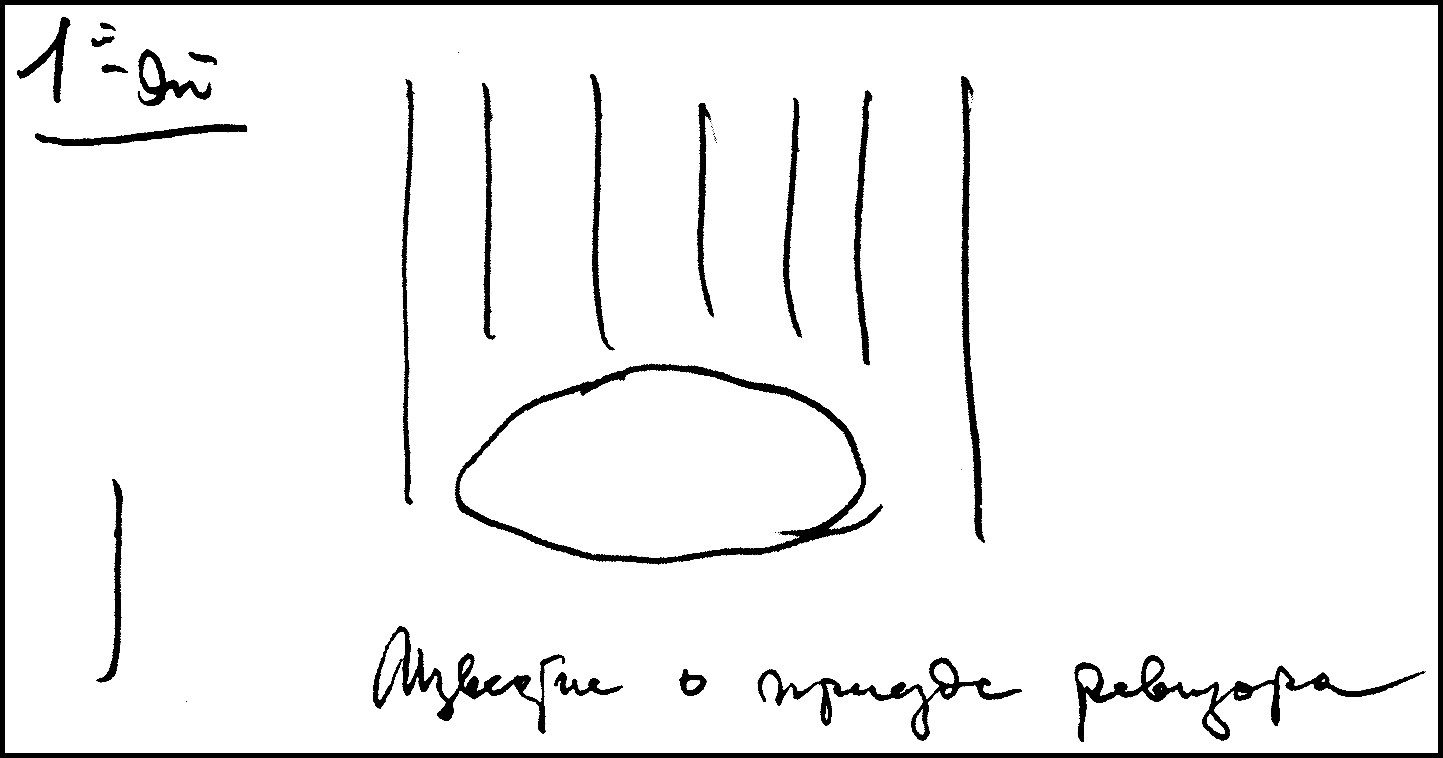 Известие о приезде ревизора